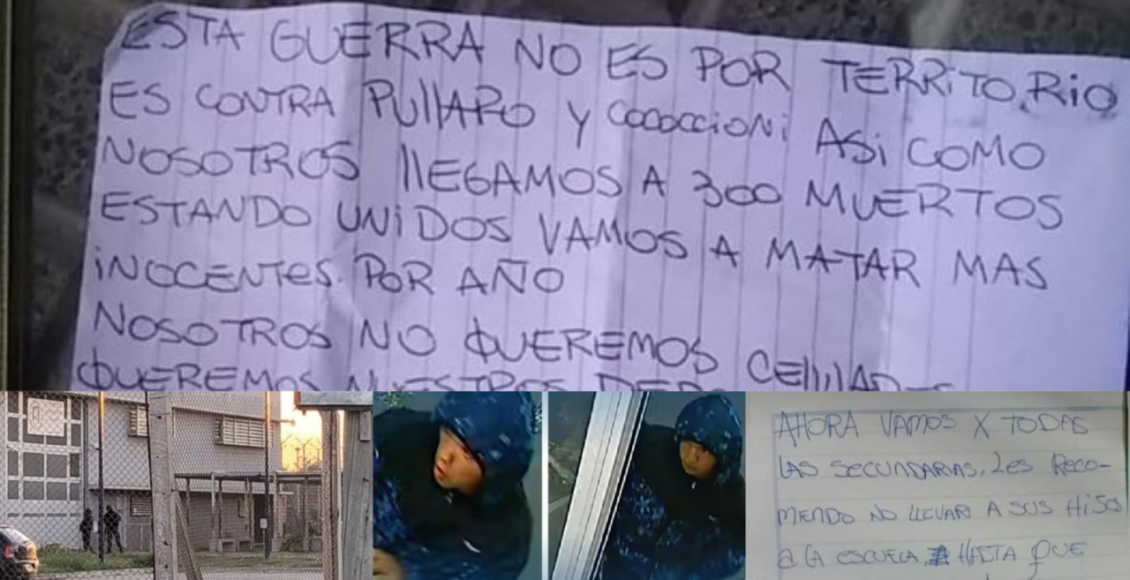 ESTA GUERRA NO ES POR TERRITORIO
ES CONTRA PUllARO Y COCOCCIONi ASi COMO
NOSOTROS llEGAMOS A 300 MUERTOS
ESTANDO UNiDOS VAMOS A MATAR MAS
iNOCENTES POR AÑO
NOSOTROS NO QUEREMOS CElUlARES
QUEREMOS NUESTROS
AHORA VAMOS X TODAS
LAS SECUNDARIAS, LES RECO-
MIENDO NO LLEVAR A SUS HiJOS
a LA ESCUELA, HASTA QUE